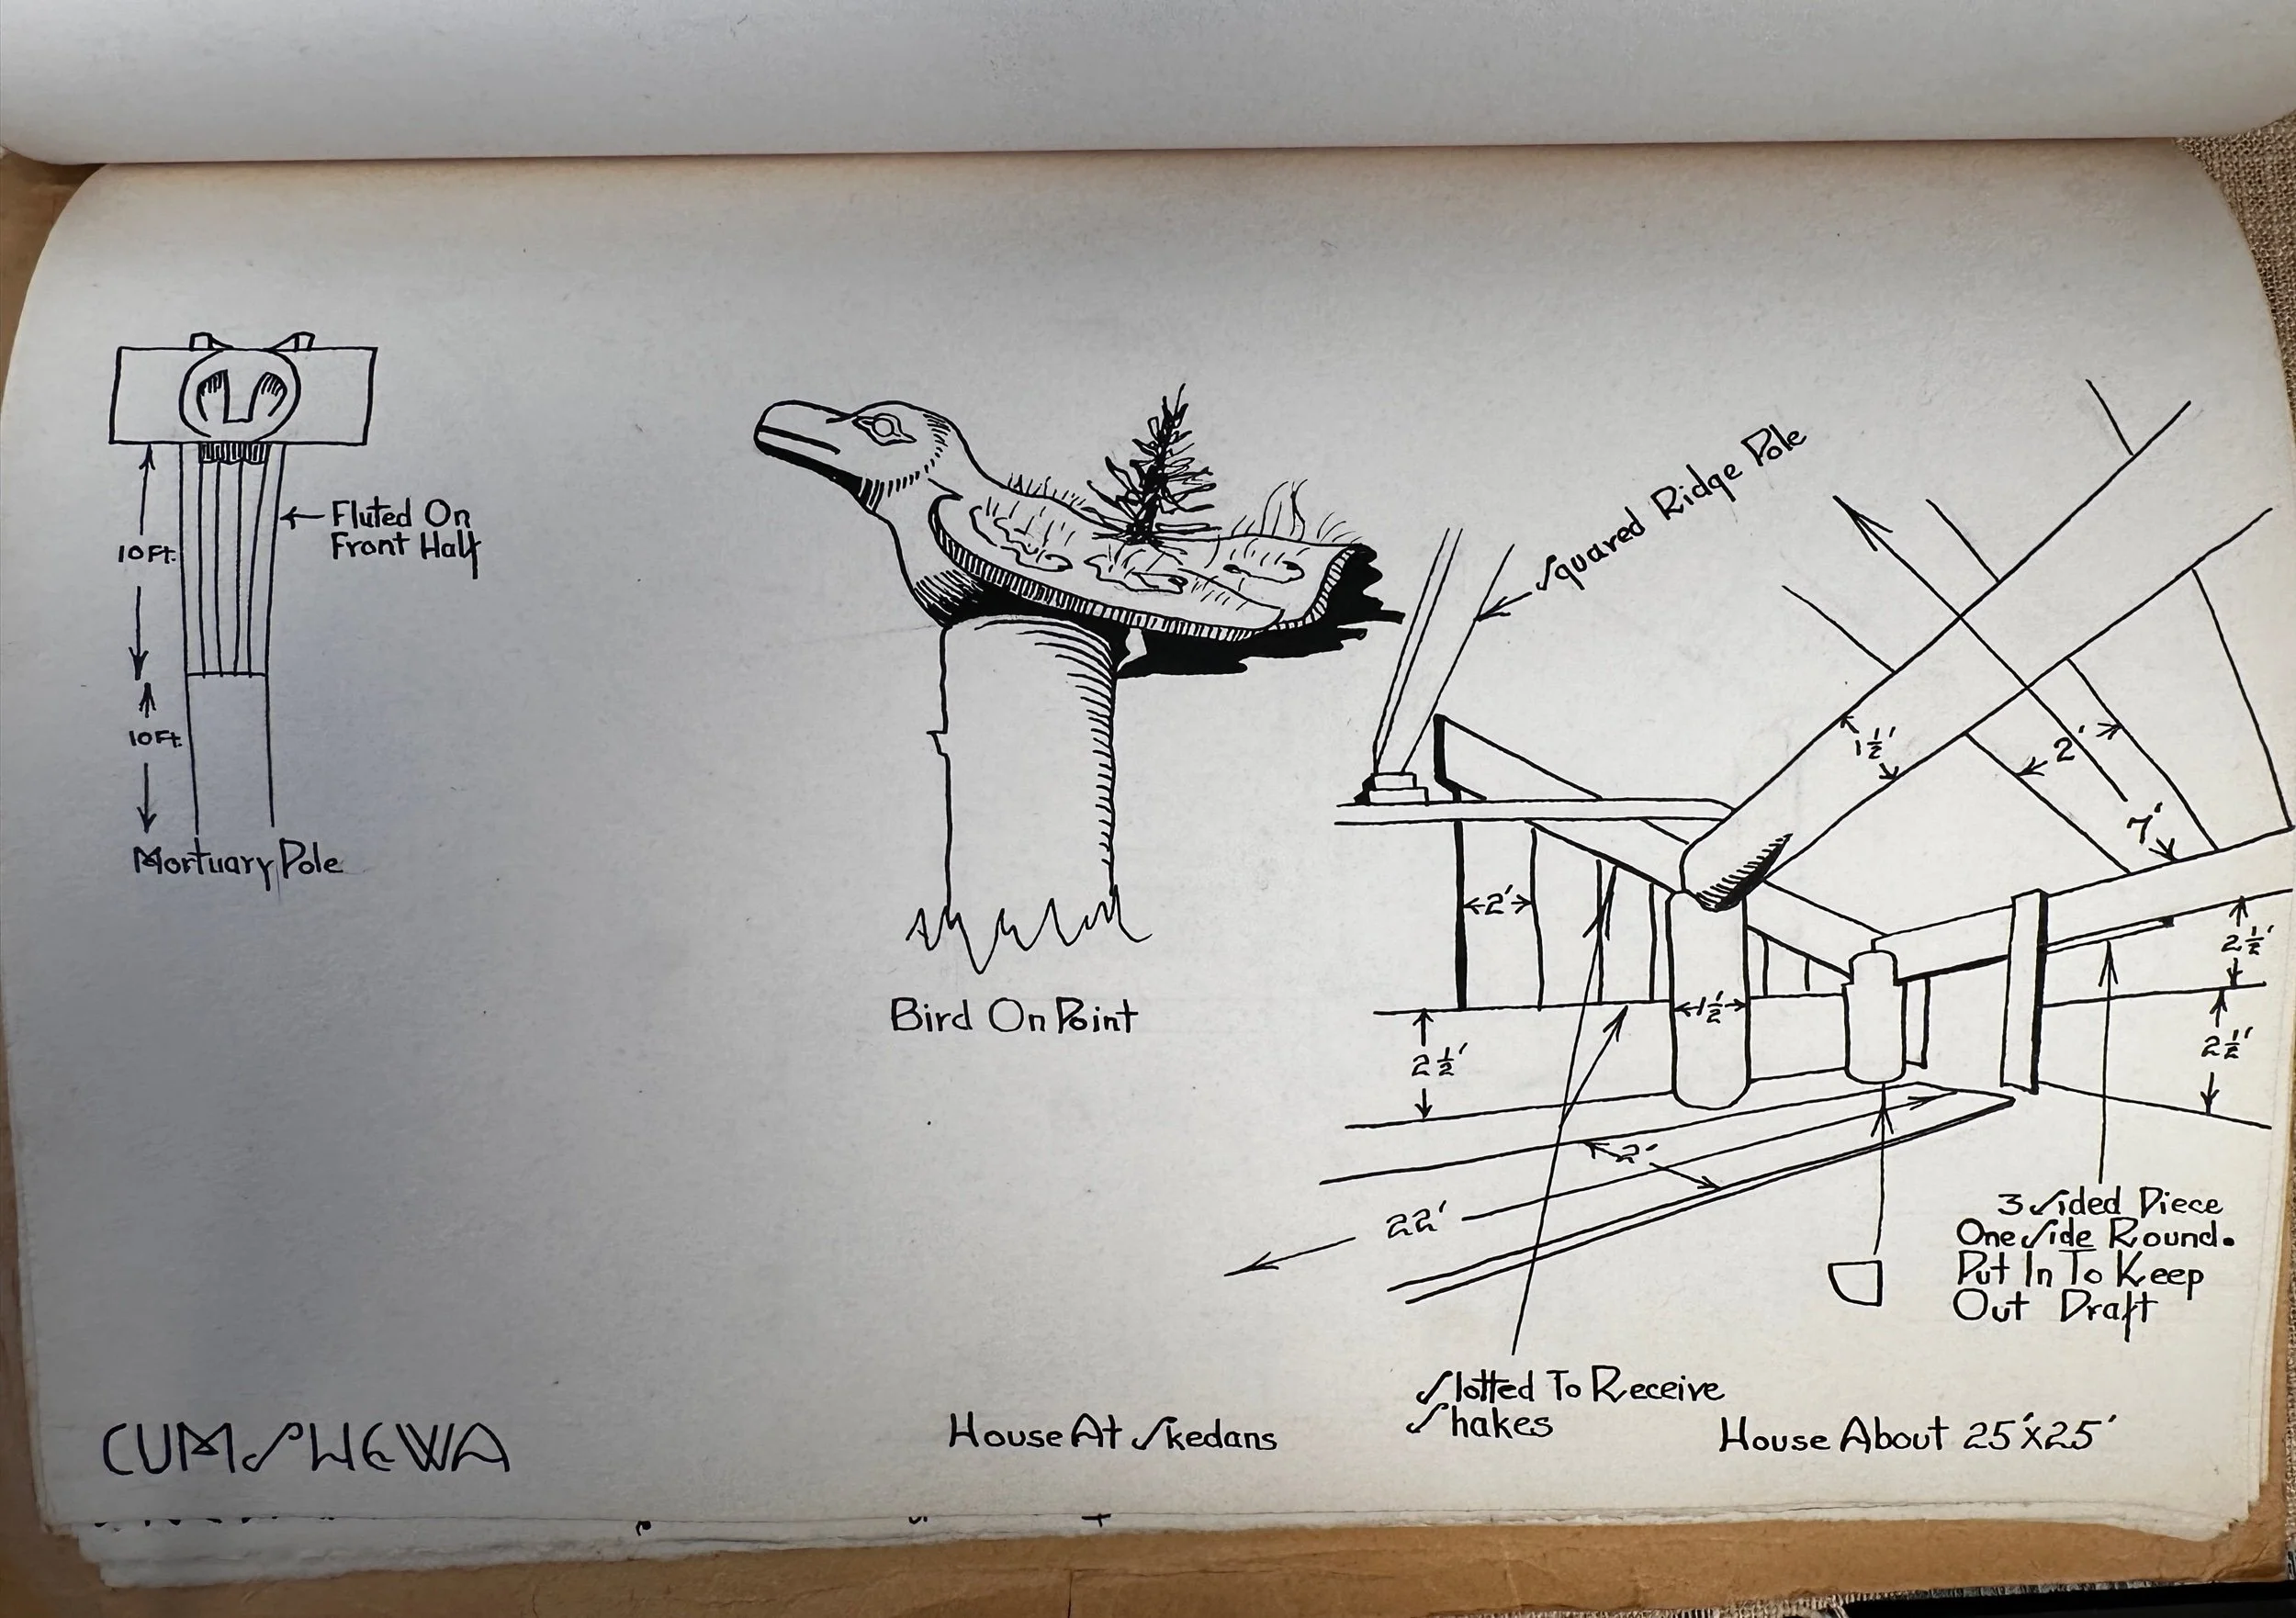 10Ft.
Fluted On
Front Half
10Ft.
Mortuary Pole
Bird On Point
Squared Ridge Pole
1½'
2'
7'
2'
2½'
1½'
2½'
2½'
2'
22'
3 Sided Piece
One Side Round.
Put In To Keep
Out Draft
Slotted To Receive
Shakes
CUMSHEWA
House At Skedans
House About 25'x25'